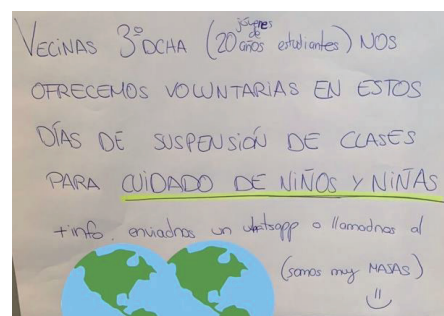 jóvenes
de
VECINAS 3º DCHA (20 años estudiantes) NOS
OFRECEMOS VOLUNTARIAS EN ESTOS
DÍAS DE SUSPENSIÓN DE CLASES
PARA CUIDADO DE NIÑOS Y NIÑAS
+info. enviadnos un whatsapp o llamadnos al
(somos muy MAJAS)